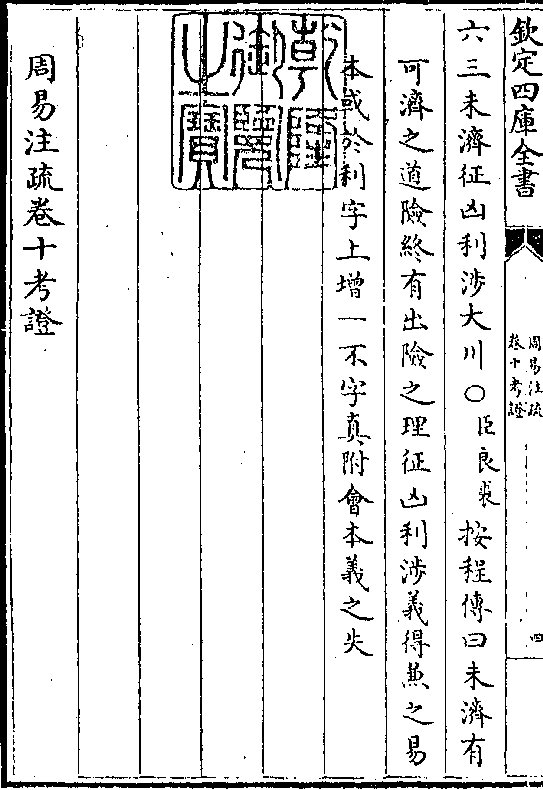 欽定四庫全書
周易注疏
卷十考證
四
六三未濟征凶利涉大川○臣良裘按程傳曰未濟有
可濟之道險終有出險之理征凶利涉義得兼之易
本或於利字上增一不字真附會本義之失
乾隆御覽之寶
周易注疏卷十考證